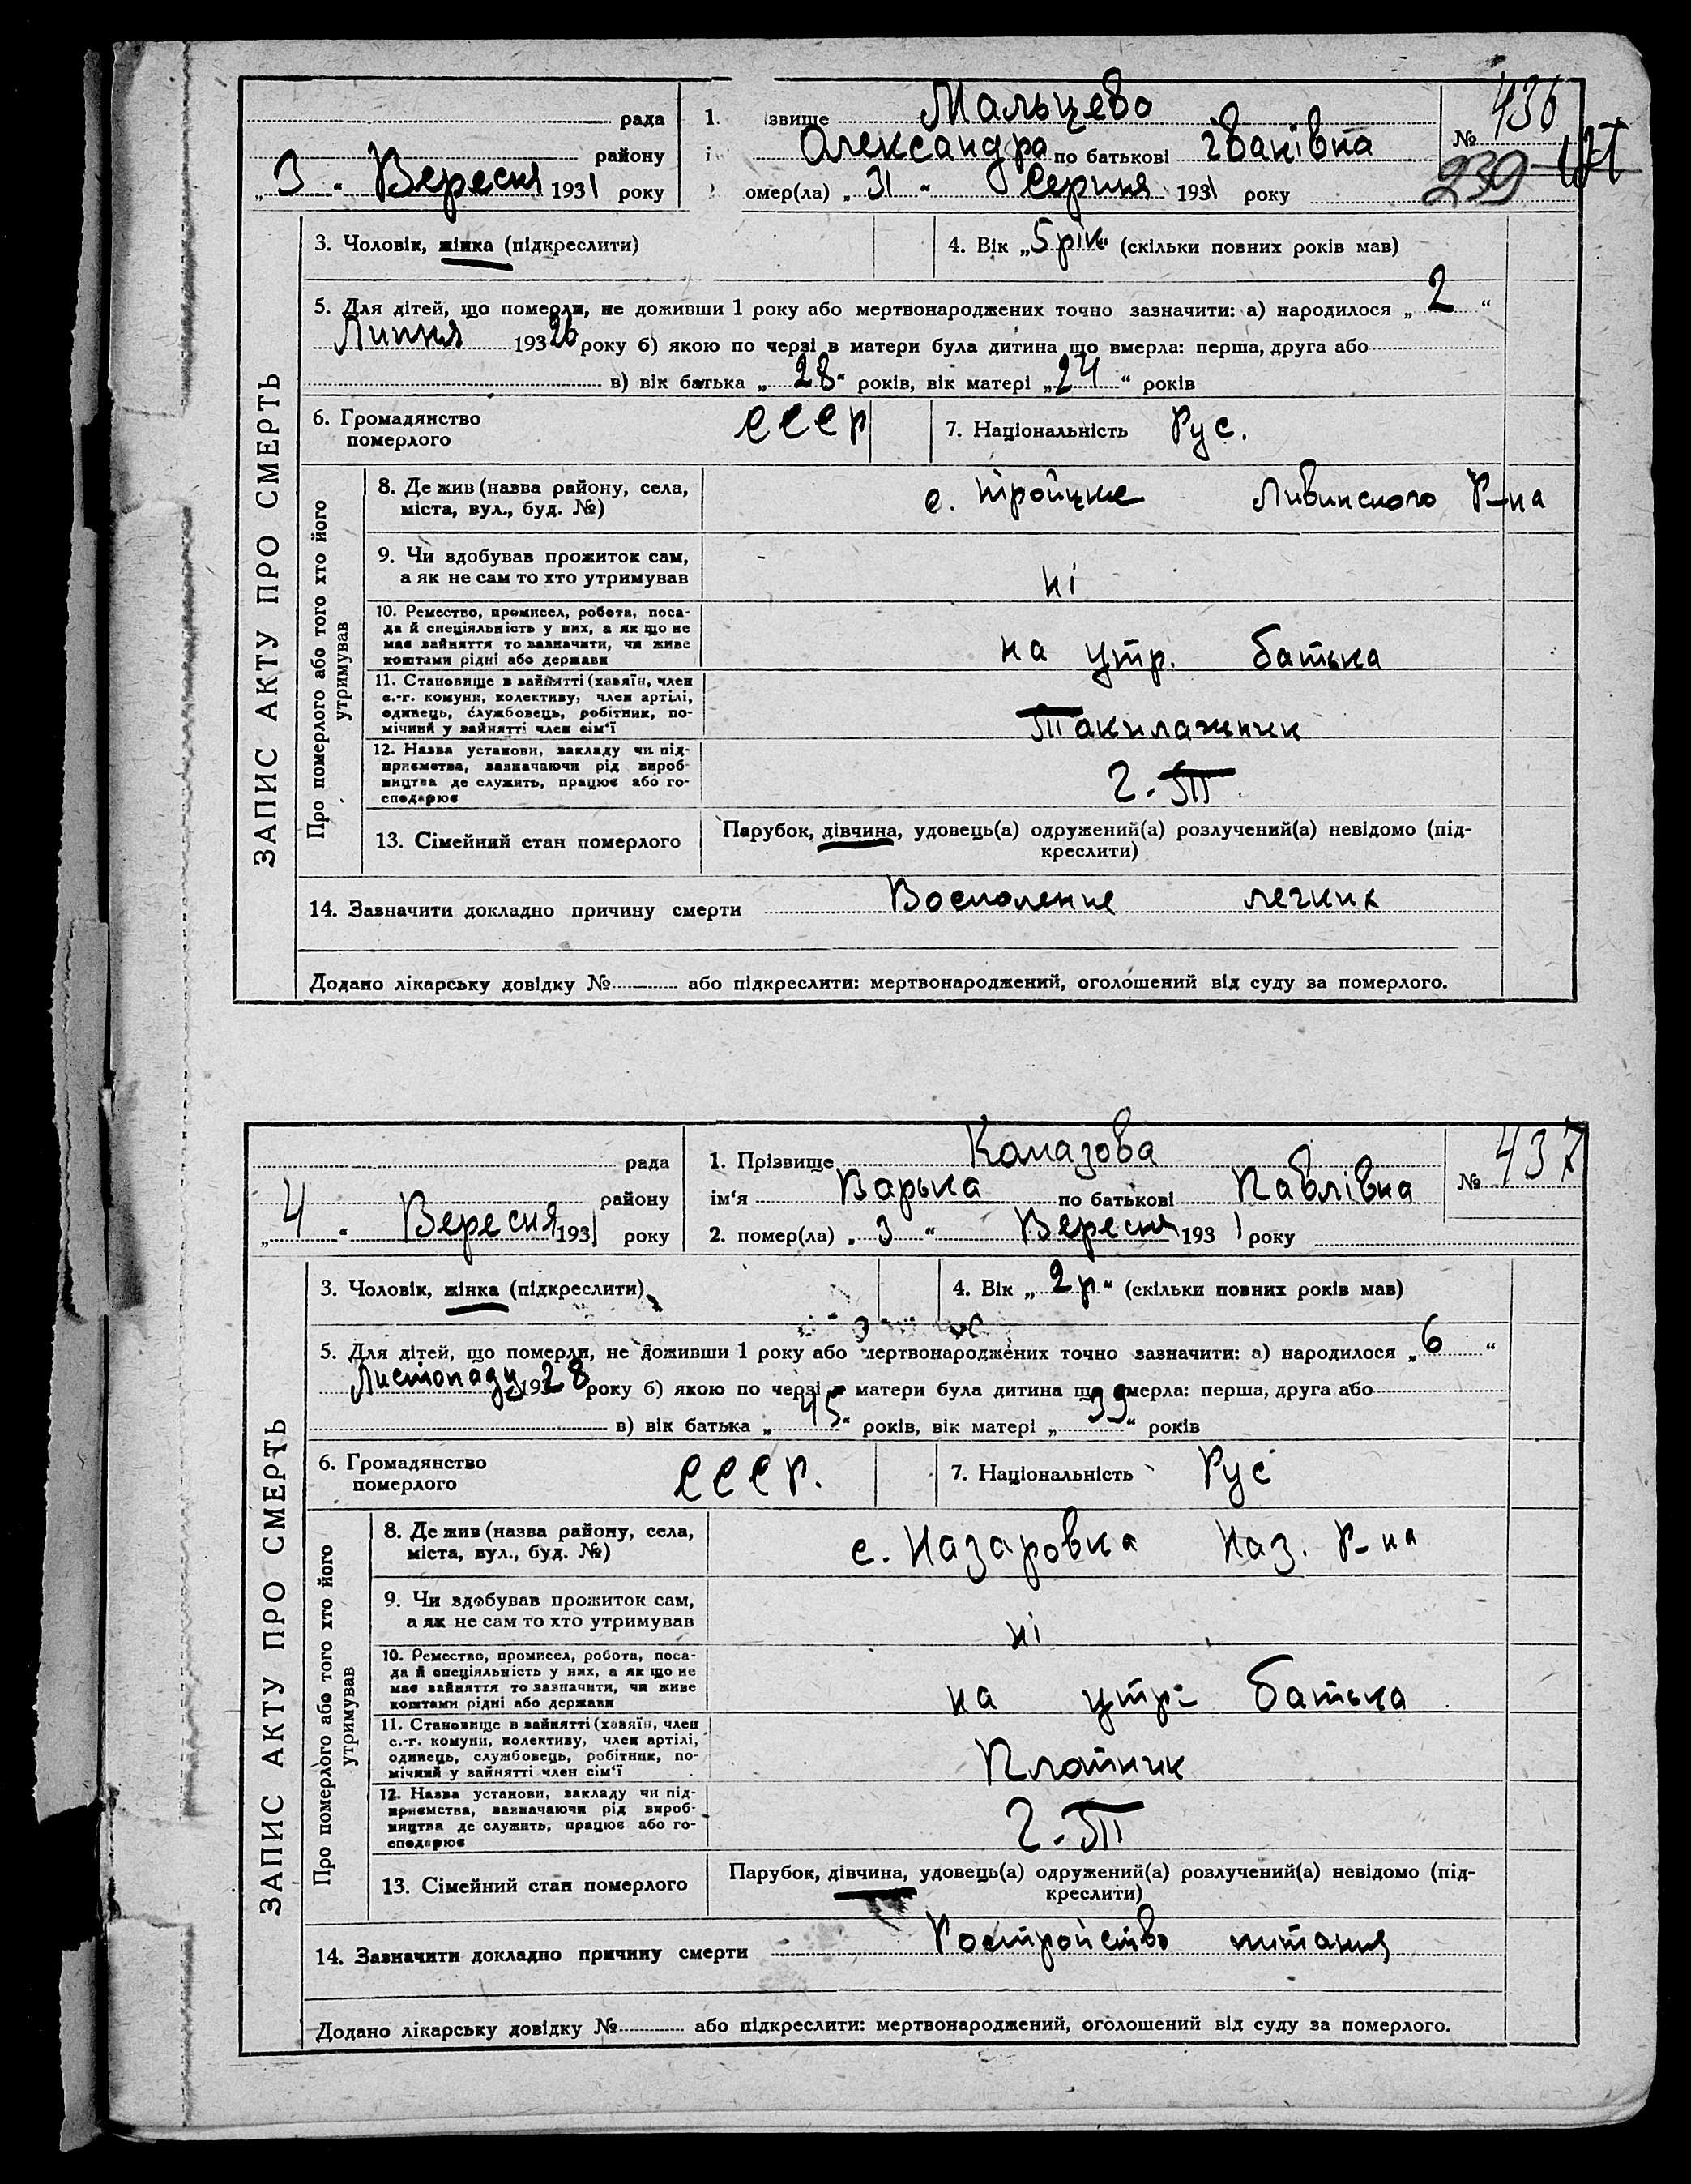 рада
району
„3“ Вересня 1931 року
1. звище Мальцева
Олександра по батькові Іванівна
омер(ла) „31“ Серпня 1931 року
№ 436
239
3. Чоловік, жінка (підкреслити)
4. Вік „5 рік“ (скільки повних років мав)
5. Для дітей, що померли, не доживши 1 року або мертвонароджених точно зазначити: а) народилося „2“
Липня 193 26 року б) якою по черзі в матери була дитина що вмерла: перша, друга або
в) вік батька „28“ років, вік матері „24“ років
6. Громадянство
померлого
СССР
7. Національність Рус.
ЗАПИС АКТУ ПРО СМЕРТЬ
Про померлого або того хто його
утримував
8. Де жив (назва району, села,
міста, вул., буд. №)
с. Тройцкое Ливинского Р-на
9. Чи здобував прожиток сам,
а як не сам то хто утримував
ні
10. Ремество, промисел, робота, поса-
да й спеціяльність у них, а як що не
має зайняття то зазначити, чи живе
коштами рідні або держави
на утр. батька
11. Становище в зайнятті (хазяїн, член
с.-г. комуни, колективу, член артілі,
одинець, службовець, робітник, по-
мічний у зайнятті член сім'ї
Такилажник
12. Назва установи, закладу чи під-
приємства, зазначаючи рід вироб-
ництва де служить, працює або го-
сподарює
Г.-П.
13. Сімейний стан померлого
Парубок, дівчина, удовець(а) одружений(а) розлучений(а) невідомо (під-
креслити)
14. Зазначити докладно причину смерти Восполение легких
Додано лікарську довідку № або підкреслити: мертвонароджений, оголошений від суду за померлого.
рада
району
„4“ Вересня 1931 року
1. Прізвище Камазова
ім'я Варька по батькові Павлівна
2. помер(ла) „3“ Вересня 1931 року
№ 437
3. Чоловік, жінка (підкреслити)
4. Вік „2 р“ (скільки повних років мав)
5. Для дітей, що померли, не доживши 1 року або мертвонароджених точно зазначити: а) народилося „6“
Листопаду 1928 року б) якою по черзі в матери була дитина що вмерла: перша, друга або
в) вік батька „45“ років, вік матері „39“ років
6. Громадянство
померлого
СССР.
7. Національність Рус
ЗАПИС АКТУ ПРО СМЕРТЬ
Про померлого або того хто його
утримував
8. Де жив (назва району, села,
міста, вул., буд. №)
с. Назаровка Наз. Р-на
9. Чи здобував прожиток сам,
а як не сам то хто утримував
ні
10. Ремество, промисел, робота, поса-
да й спеціяльність у них, а як що не
має зайняття то зазначити, чи живе
коштами рідні або держави
на утр- батька
11. Становище в зайнятті (хазяїн, член
с.-г. комуни, колективу, член артілі,
одинець, службовець, робітник, по-
мічний у зайнятті член сім'ї
Плотник
12. Назва установи, закладу чи під-
приємства, зазначаючи рід вироб-
ництва де служить, працює або го-
сподарює
Г.-П
13. Сімейний стан померлого
Парубок, дівчина, удовець(а) одружений(а) розлучений(а) невідомо (під-
креслити)
14. Зазначити докладно причину смерти Ростройство питания
Додано лікарську довідку № або підкреслити: мертвонароджений, оголошений від суду за померлого.